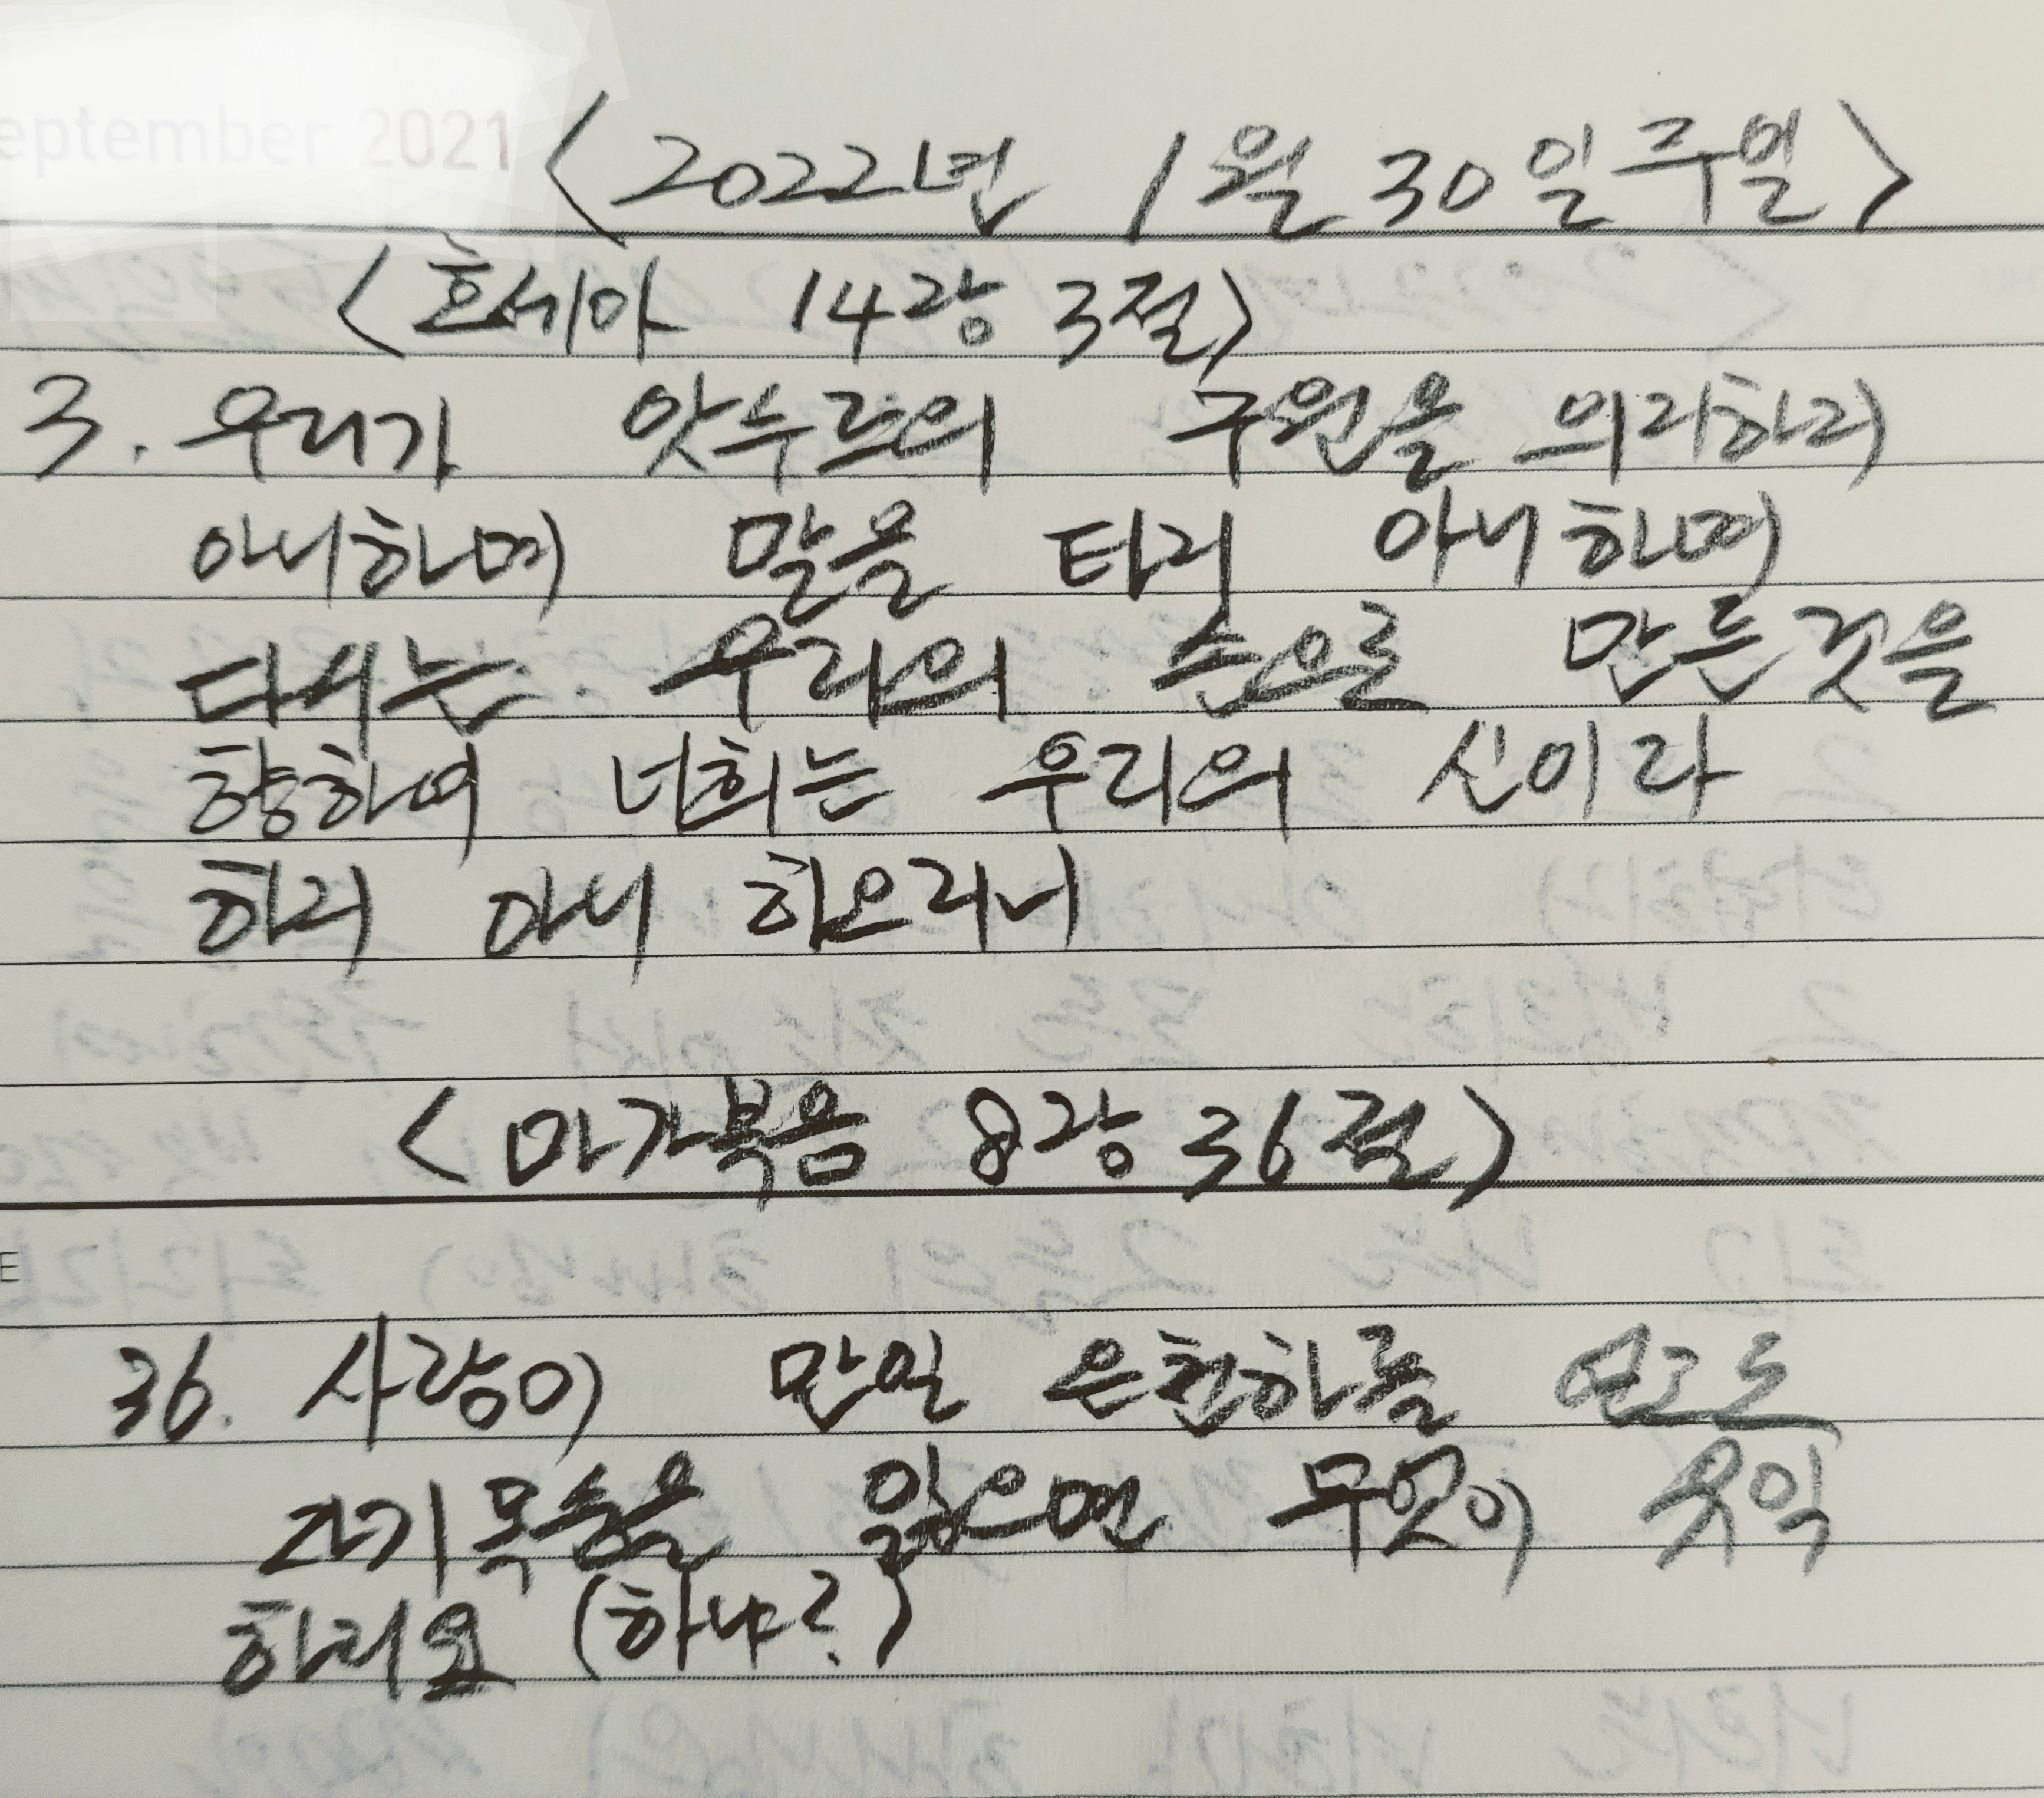 eptember 2021
<2022년 1월 30일 주일>
<호세아 14장 3절>
3. 우리가 앗수르의 구원을 의지하지
아니하며 말을 타지 아니하며
다시는 우리의 손으로 만든것을
향하여 너희는 우리의 신이라
하지 아니 하오리니
<마가복음 8장 36절>
E
36. 사람이 만일 온천하를 얻고도
자기목숨을 잃으면 무엇이 유익
하리요 (하냐?)